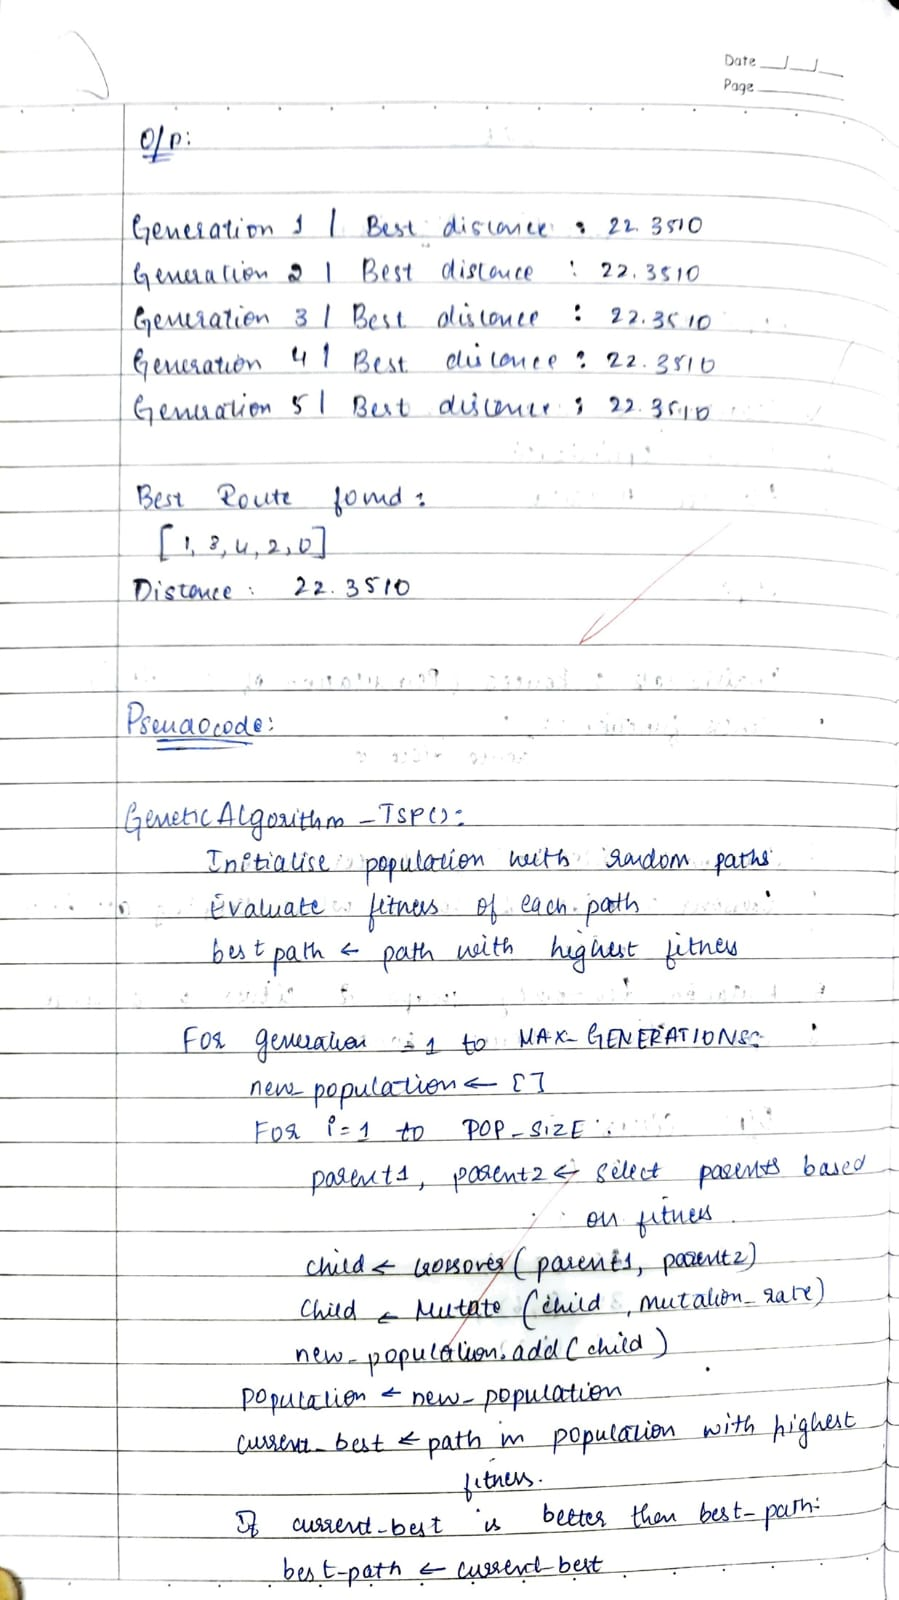 Date __/__/__
Page ____
O/p:
Generation 1 | Best distance : 22.3510
Generation 2 | Best distance : 22.3510
Generation 3 | Best distance : 22.3510
Generation 4 | Best distance : 22.3510
Generation 5 | Best distance : 22.3510
Best Route found :
[1, 3, 4, 2, 0]
Distance : 22.3510
Pseudocode:
Genetic Algorithm - TSP():
Initialise population with random paths
Evaluate fitness of each path
best path ← path with highest fitness
For generation = 1 to MAX-GENERATIONS:
new-population ← []
For i=1 to POP-SIZE :
parent1, parent2 ← select parents based
on fitness.
child ← crossover (parent1, parent2)
Child ← Mutate (child, mutation-rate)
new-population.add(child)
population ← new-population
current-best ← path in population with highest
fitness.
If current-best is better than best-path:
best-path ← current-best